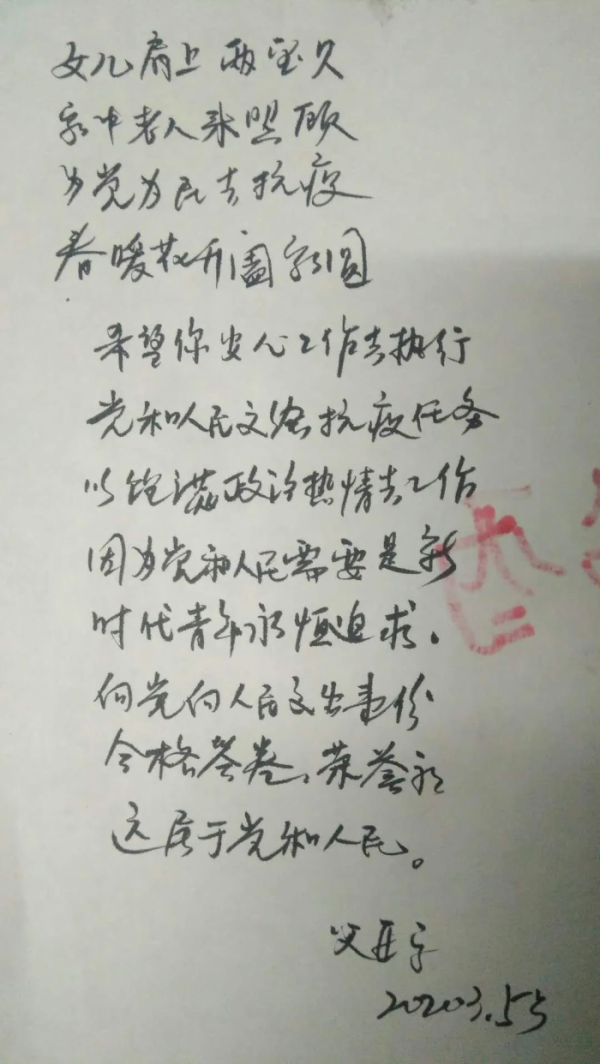 女儿肩上两宝贝
家中老人来照顾
为党为民去抗疫
春暖花开阖家圆
希望你安心工作去执行
党和人民交给抗疫任务
以饱满政治热情去工作
因为党和人民需要是新
时代青年永恒追求。
向党向人民交出一份
合格答卷、荣誉永
远属于党和人民。
父亲字
2020 3.5号